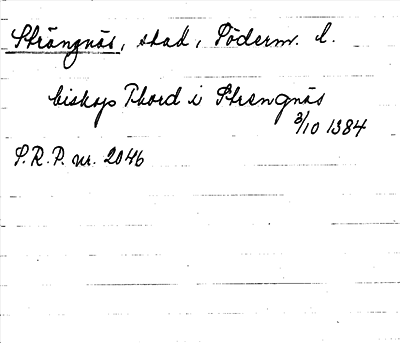 Strängnäs, stad, Söderm. l.
biskop Thord i Strengnäs
3/10 1384
S.R.P. nr. 2046